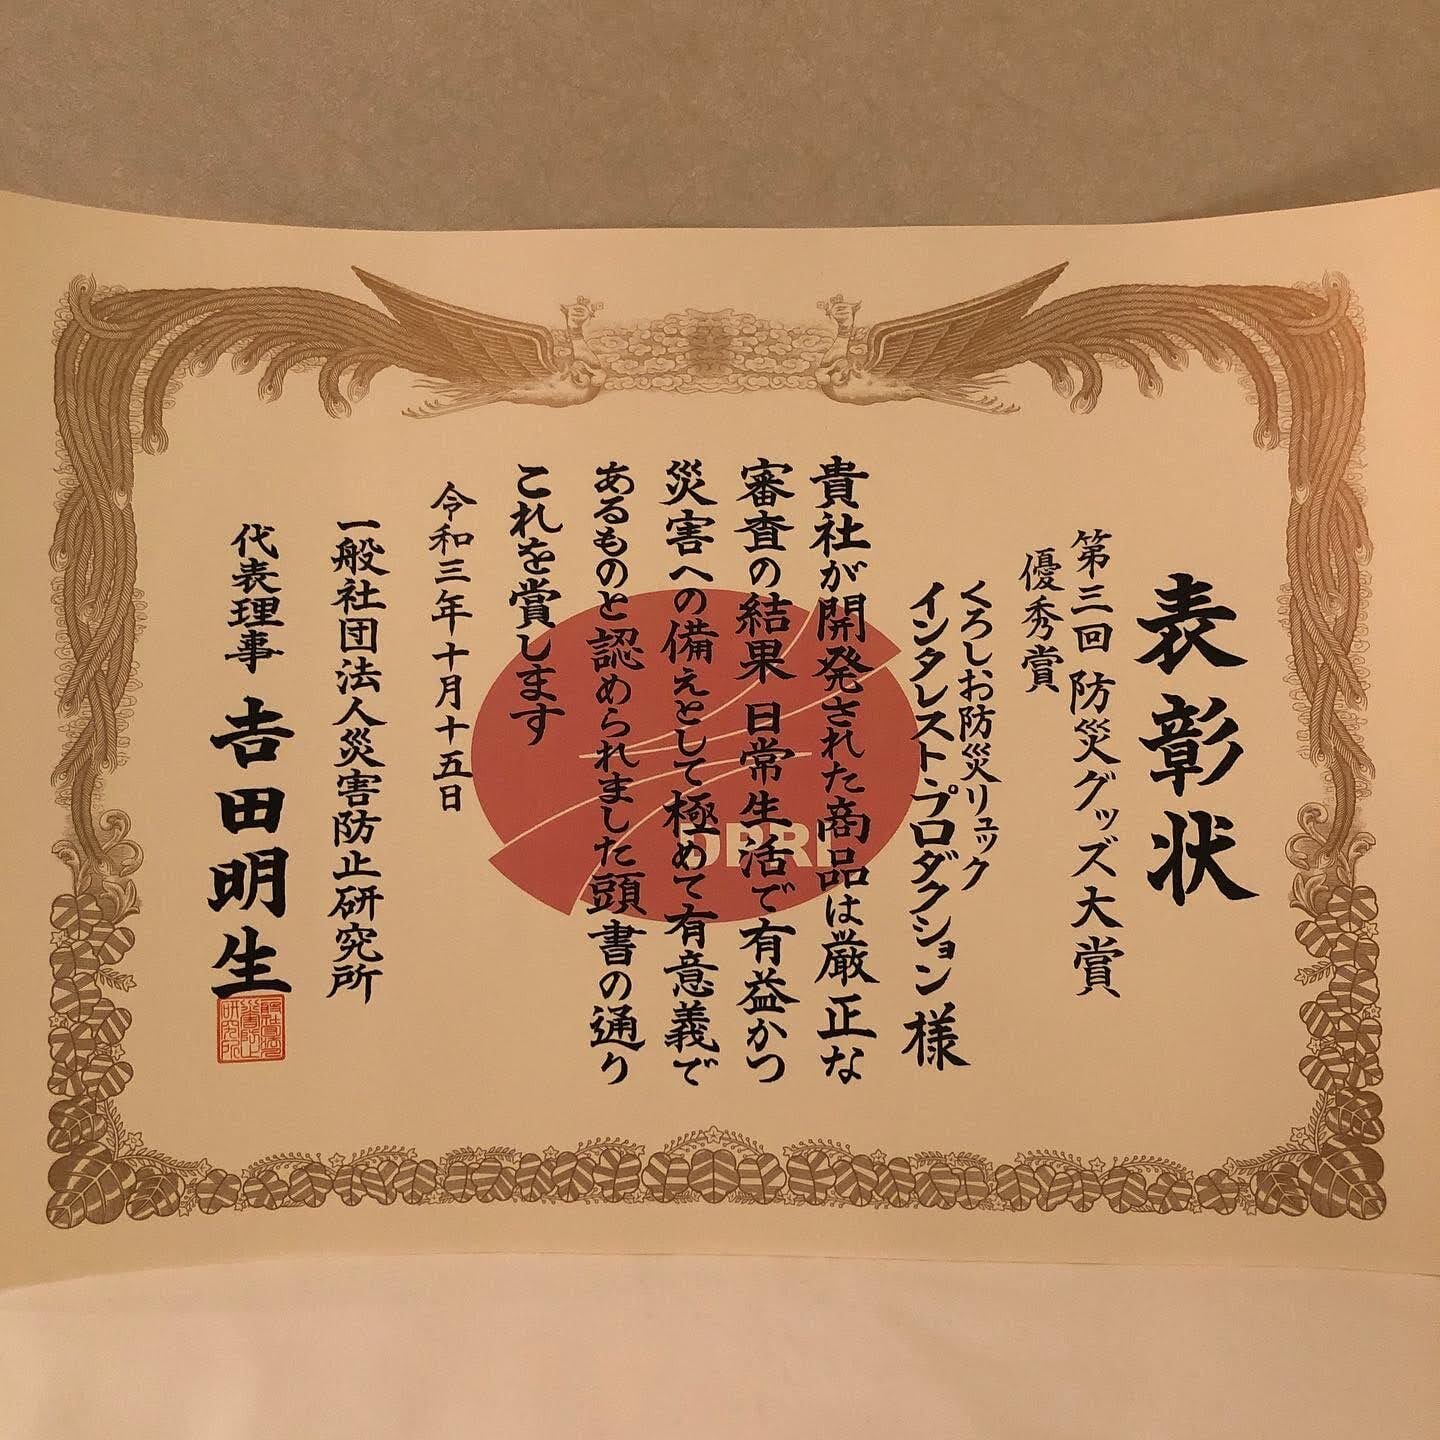 表彰状
第三回 防災グッズ大賞
優秀賞
くろしお防災リュック
インタレスト・プロダクション 様
貴社が開発された商品は厳正な
審査の結果 日常生活で有益かつ
災害への備えとして極めて有意義で
あるものと認められました頭書の通り
これを賞します
令和三年十月十五日
一般社団法人災害防止研究所
代表理事 吉田明生
DPRI